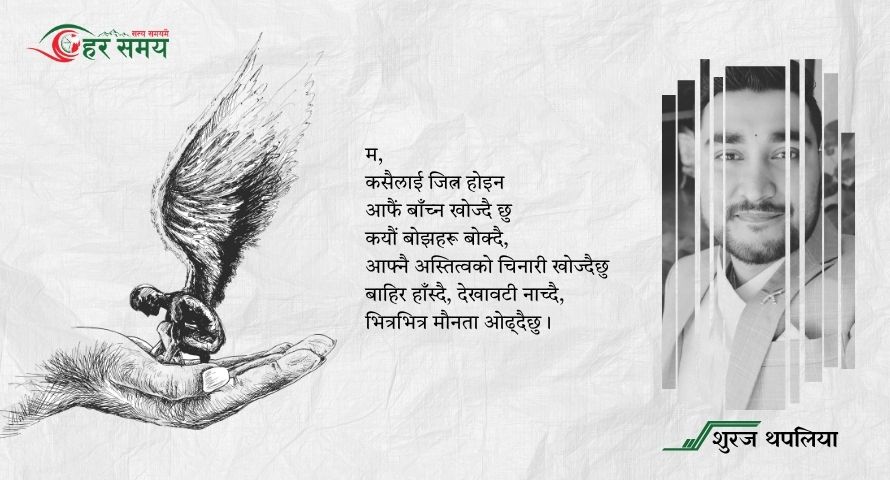 सत्य समयमै
हर समय
म,
कसैलाई जित्न होइन
आफैं बाँच्न खोज्दै छु
कयौं बोझहरू बोक्दै,
आफ्नै अस्तित्वको चिनारी खोज्दैछु
बाहिर हाँस्दै, देखावटी नाच्दै,
भित्रभित्र मौनता ओढ्दैछु।
शुरज थपलिया